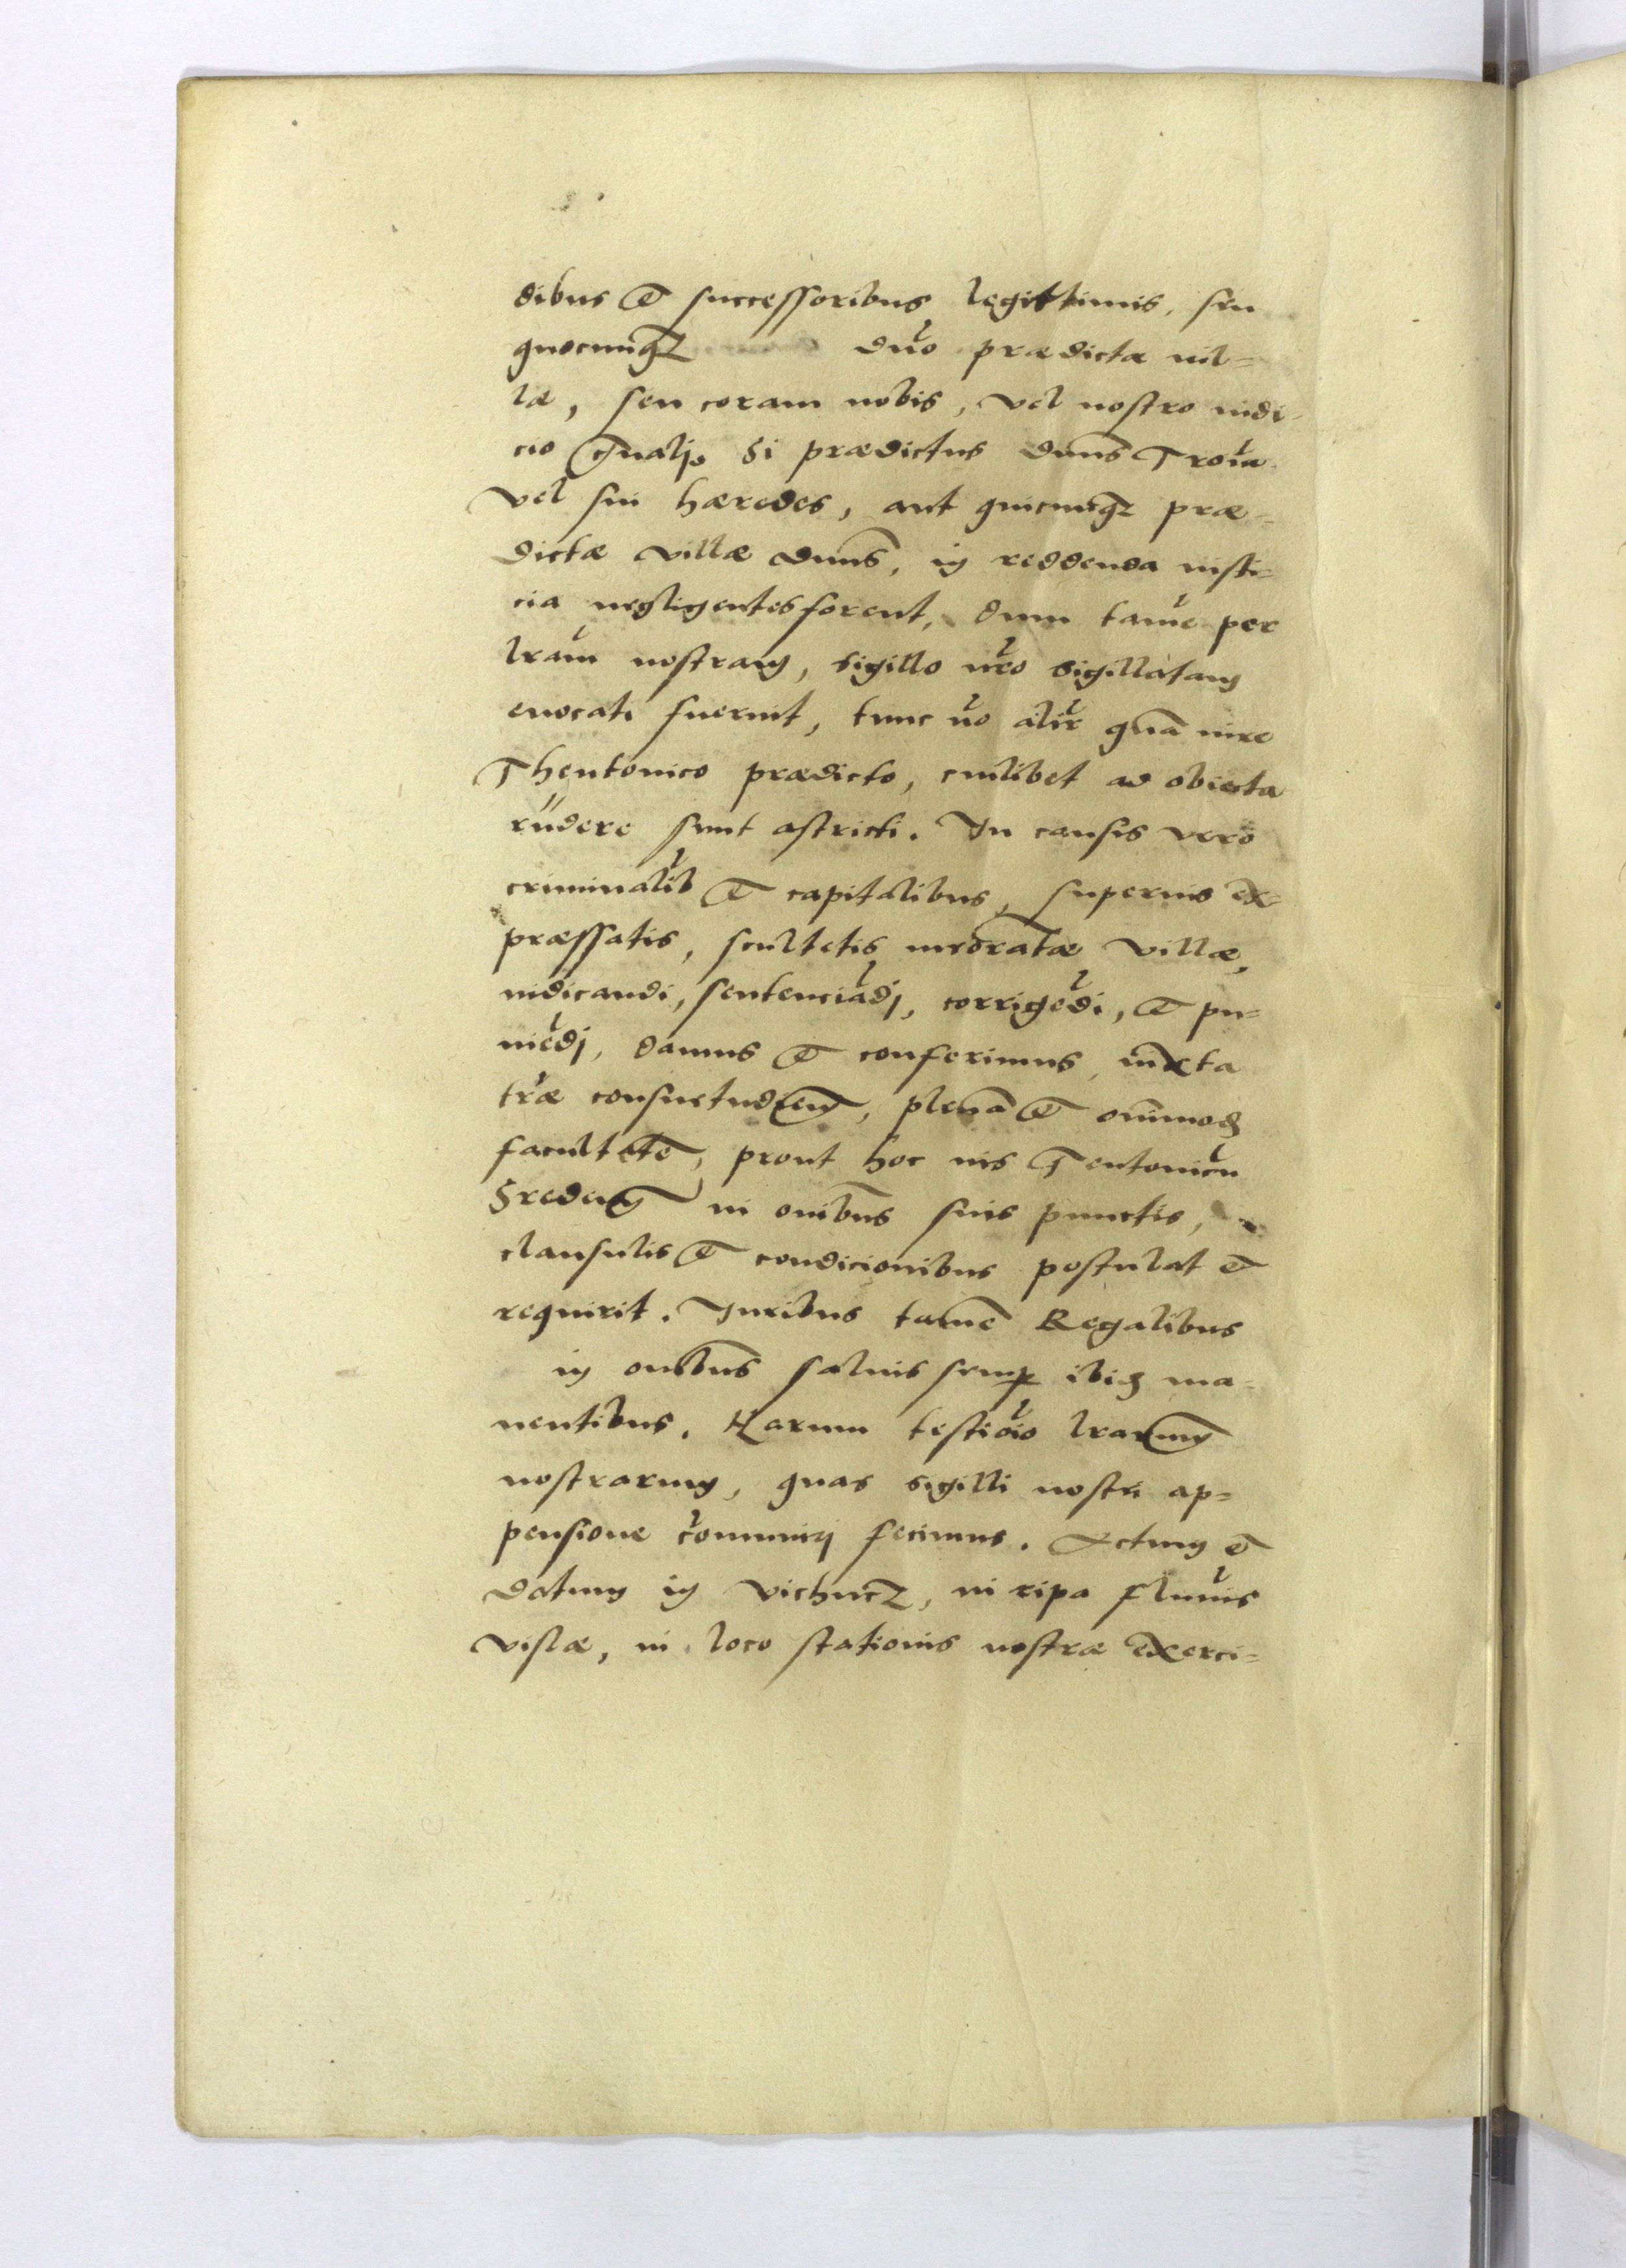 dibus et successoribus legittimis, seu
quocunqz duo prædictæ vil=
læ, seu coram nobis, vel nostro iudi-
cio gnalj. Si prædictus duns Trova
vel sui hæredes, aut quicunqz præ=
dictæ villæ duns, in reddenda iusti=
cia negligentes forent, dum tamē per
lram nostram, sigillo nro sigillatam
euocati fuerint, tunc vo alir quā iure
Theutonico prædicto, cuilibet ad obiecta
rūdere sunt astricti. In causis vero
criminalib et capitalibus, superius ex=
præssatis, scultetis mēoratæ villæ,
iudicandi, sentenciādj, corrigēdi, et pu=
niēdj, damus et conferimus iuxta
træ consuetudiēm, plenā et omnimod
facultatē, prout hoc ius Teutonicū
Sredem in onibus suis punctis,
clausulis et condicionibus postulat et
requirit. Juribus tamē Regalibus
in onibus saluis semp ibid ma-
nentibus. Harum testiōio lrarum
nostrarum, quas sigilli nostri ap=
pensione cōmuniri fecimus. Actum et
datum in vichucz, in ripa fluuis
vislæ, in loco stationis nostræ exerci=